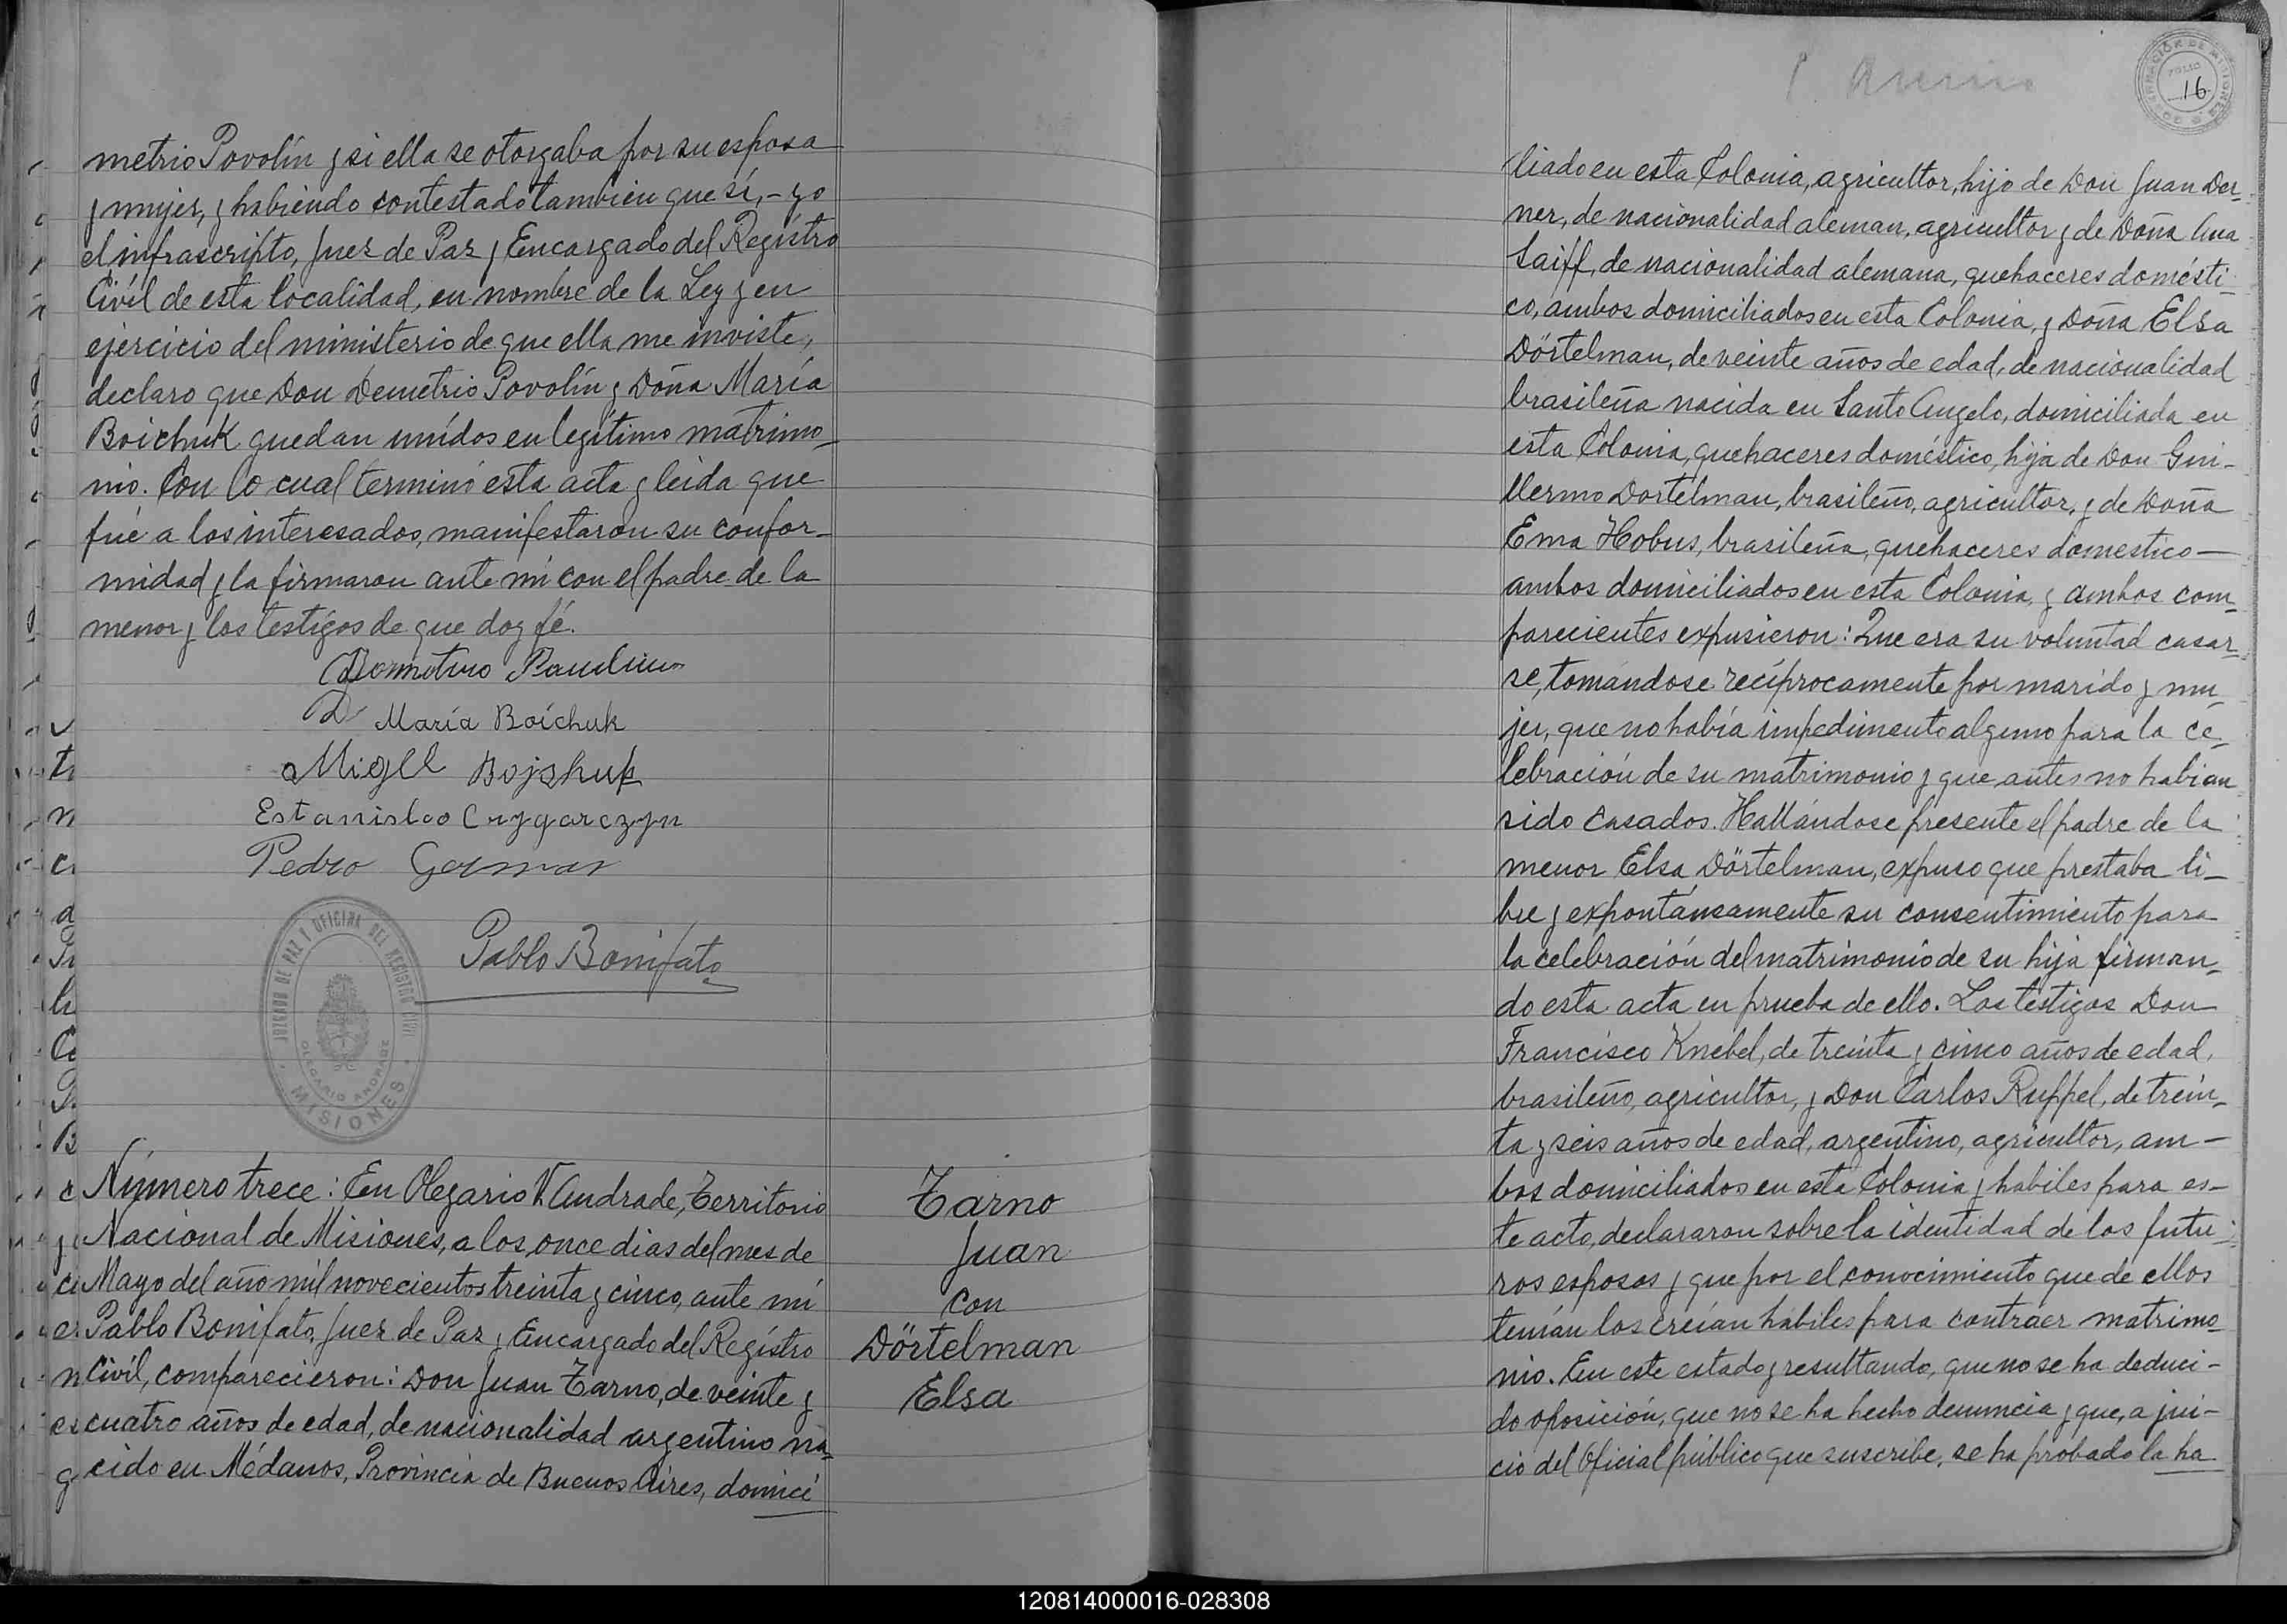 metrio Povolín y si ella se otorgaba por su esposa
y mujer, y habiendo contestado tambien que sí, - yo
el infrascripto, Juez de Paz y Encargado del Regístro
Civíl de esta localidad, en nombre de la Ley y en
ejercicio del ministerio de que ella me inviste,
declaro que Don Demetrio Povolín y Doña María
Boichuk quedan unídos en legítimo matrimo-
nio. Con lo cual terminó esta acta y leida que
fué a los interesados, manifestaron su confor-
midad y la firmaron ante mí con el padre de la
menor y los testígos de que doy fé.
María Boíchuk
Migel Bojzhuk
Estanislao
Pedro German
Pablo Bonifato
JUZGADO DE PAZ Y OFICINA DEL REGISTRO CIVIL
OLEGARIO ANDRADE
MISIONES
Número trece: En Olegario V. Andrade, Territorio
Nacional de Misiones, a los once dias del mes de
Mayo del año mil novecientos treinta y cinco, ante mí
Pablo Bonifato, Juez de Paz y Encargado del Regístro
Civil, comparecieron: Don Juan Tarno, de veinte y
cuatro años de edad, de nacionalidad argentino na-
cido en Médanos, Provincia de Buenos Aires, domici
Tarno
Juan
con
Dörtelman
Elsa
FOLIO
16
liado en esta Colonia, agricultor, hijo de Don Juan Der-
ner, de nacionalidad aleman, agricultor y de Doña Ana
Saiff, de nacionalidad alemana, quehaceres domésti-
co, ambos domiciliados en esta Colonia, y Doña Elsa
Dörtelman, de veinte años de edad, de nacionalidad
brasileña nacida en Santo Angelo, domiciliada en
esta Colonia, quehaceres doméstico, hija de Don Gui-
llermo Dortelman, brasileño, agricultor, y de Doña
Ema Hobus, brasileña, quehaceres domestico —
ambos domiciliados en esta Colonia, y ambos com-
parecientes expusieron: Que era su voluntad casar-
se, tomándose recíprocamente por marido y mu-
jer, que no había impedimento alguno para la ce-
lebración de su matrimonio y que antes no habian
sido casados. Hallándose presente el padre de la
menor Elsa Dörtelman, expuso que prestaba li-
bre y expontáneamente su consentimiento para
la celebración del matrimonio de su hija firman-
do esta acta en prueba de ello. Los testigos Don
Francisco Knebel, de treinta y cinco años de edad,
brasileño, agricultor, y Don Carlos Ruppel, de trein-
ta y seis años de edad, argentino, agricultor, am-
bos domiciliados en esta Colonia y habiles para es-
te acto, declararon sobre la identidad de los futu-
ros esposos y que por el conocimiento que de ellos
tenían los creían hábiles para contraer matrimo-
nio. En este estado y resultando, que no se ha deduci-
do oposición, que no se ha hecho denuncia y que, a jui-
cio del Oficial público que suscribe, se ha probado la ha
120814000016-028308